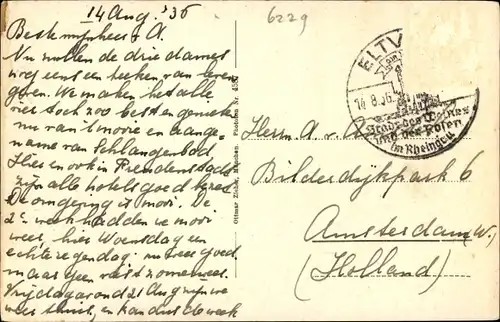 14 Aug. '36
6229
Beste mijnheer v. A.
Nu zullen de drie dames
nog eens een teeken van leven
geven. We maken het alle
vier toch zoo best en genieten
van 't mooie en aange-
name van Schlangenbad.
Hier en ook in Freudenstadt
zijn alle hotels goed bezet.
De omgeving is mooi. De
2e week hadden we mooi
weer, hier Woensdag een
echte regendag: nu weer goed
maar geen vast zomerweer.
Vrijdagavond 21 Aug zijn we
weer thuis, en kan dus de week
Ottmar Zieher, München.
ELTV
14.8.36
Stadt des Weines
und der Rosen
im Rheingau
Herrn A. v. A
Bilderdijkpark 6
Amsterdam (W.)
(Holland)